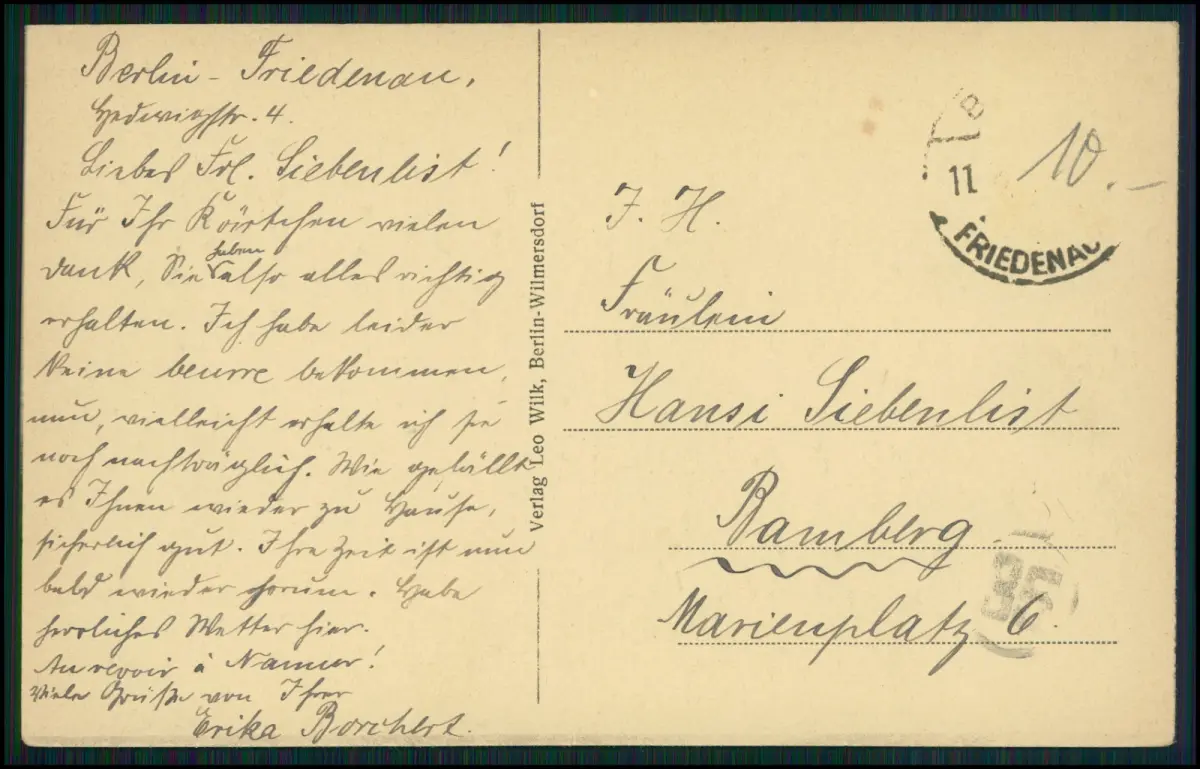 Berlin-Friedenau,
Hedwigstr. 4.
Liebes Frl. Siebenlist!
Für Ihr Körtchen vielen
Dank, Sie haben also alles richtig
erhalten. Ich habe leider
keine beurre bekommen,
nun, vielleicht erhalte ich sie
noch nachträglich. Wie gefällt
es Ihnen wieder zu Hause,
sicherlich gut. Ihre Zeit ist nun
bald wieder herum. Habe
herrliches Wetter hier.
Au revoir à Namur!
Viele Grüße von Ihrer
Erika Borchert.
Verlag Leo Wilk, Berlin-Wilmersdorf
11
FRIEDENAU
10.-
J. H.
Fräulein
Hansi Siebenlist
Bamberg
Marienplatz 6.
35